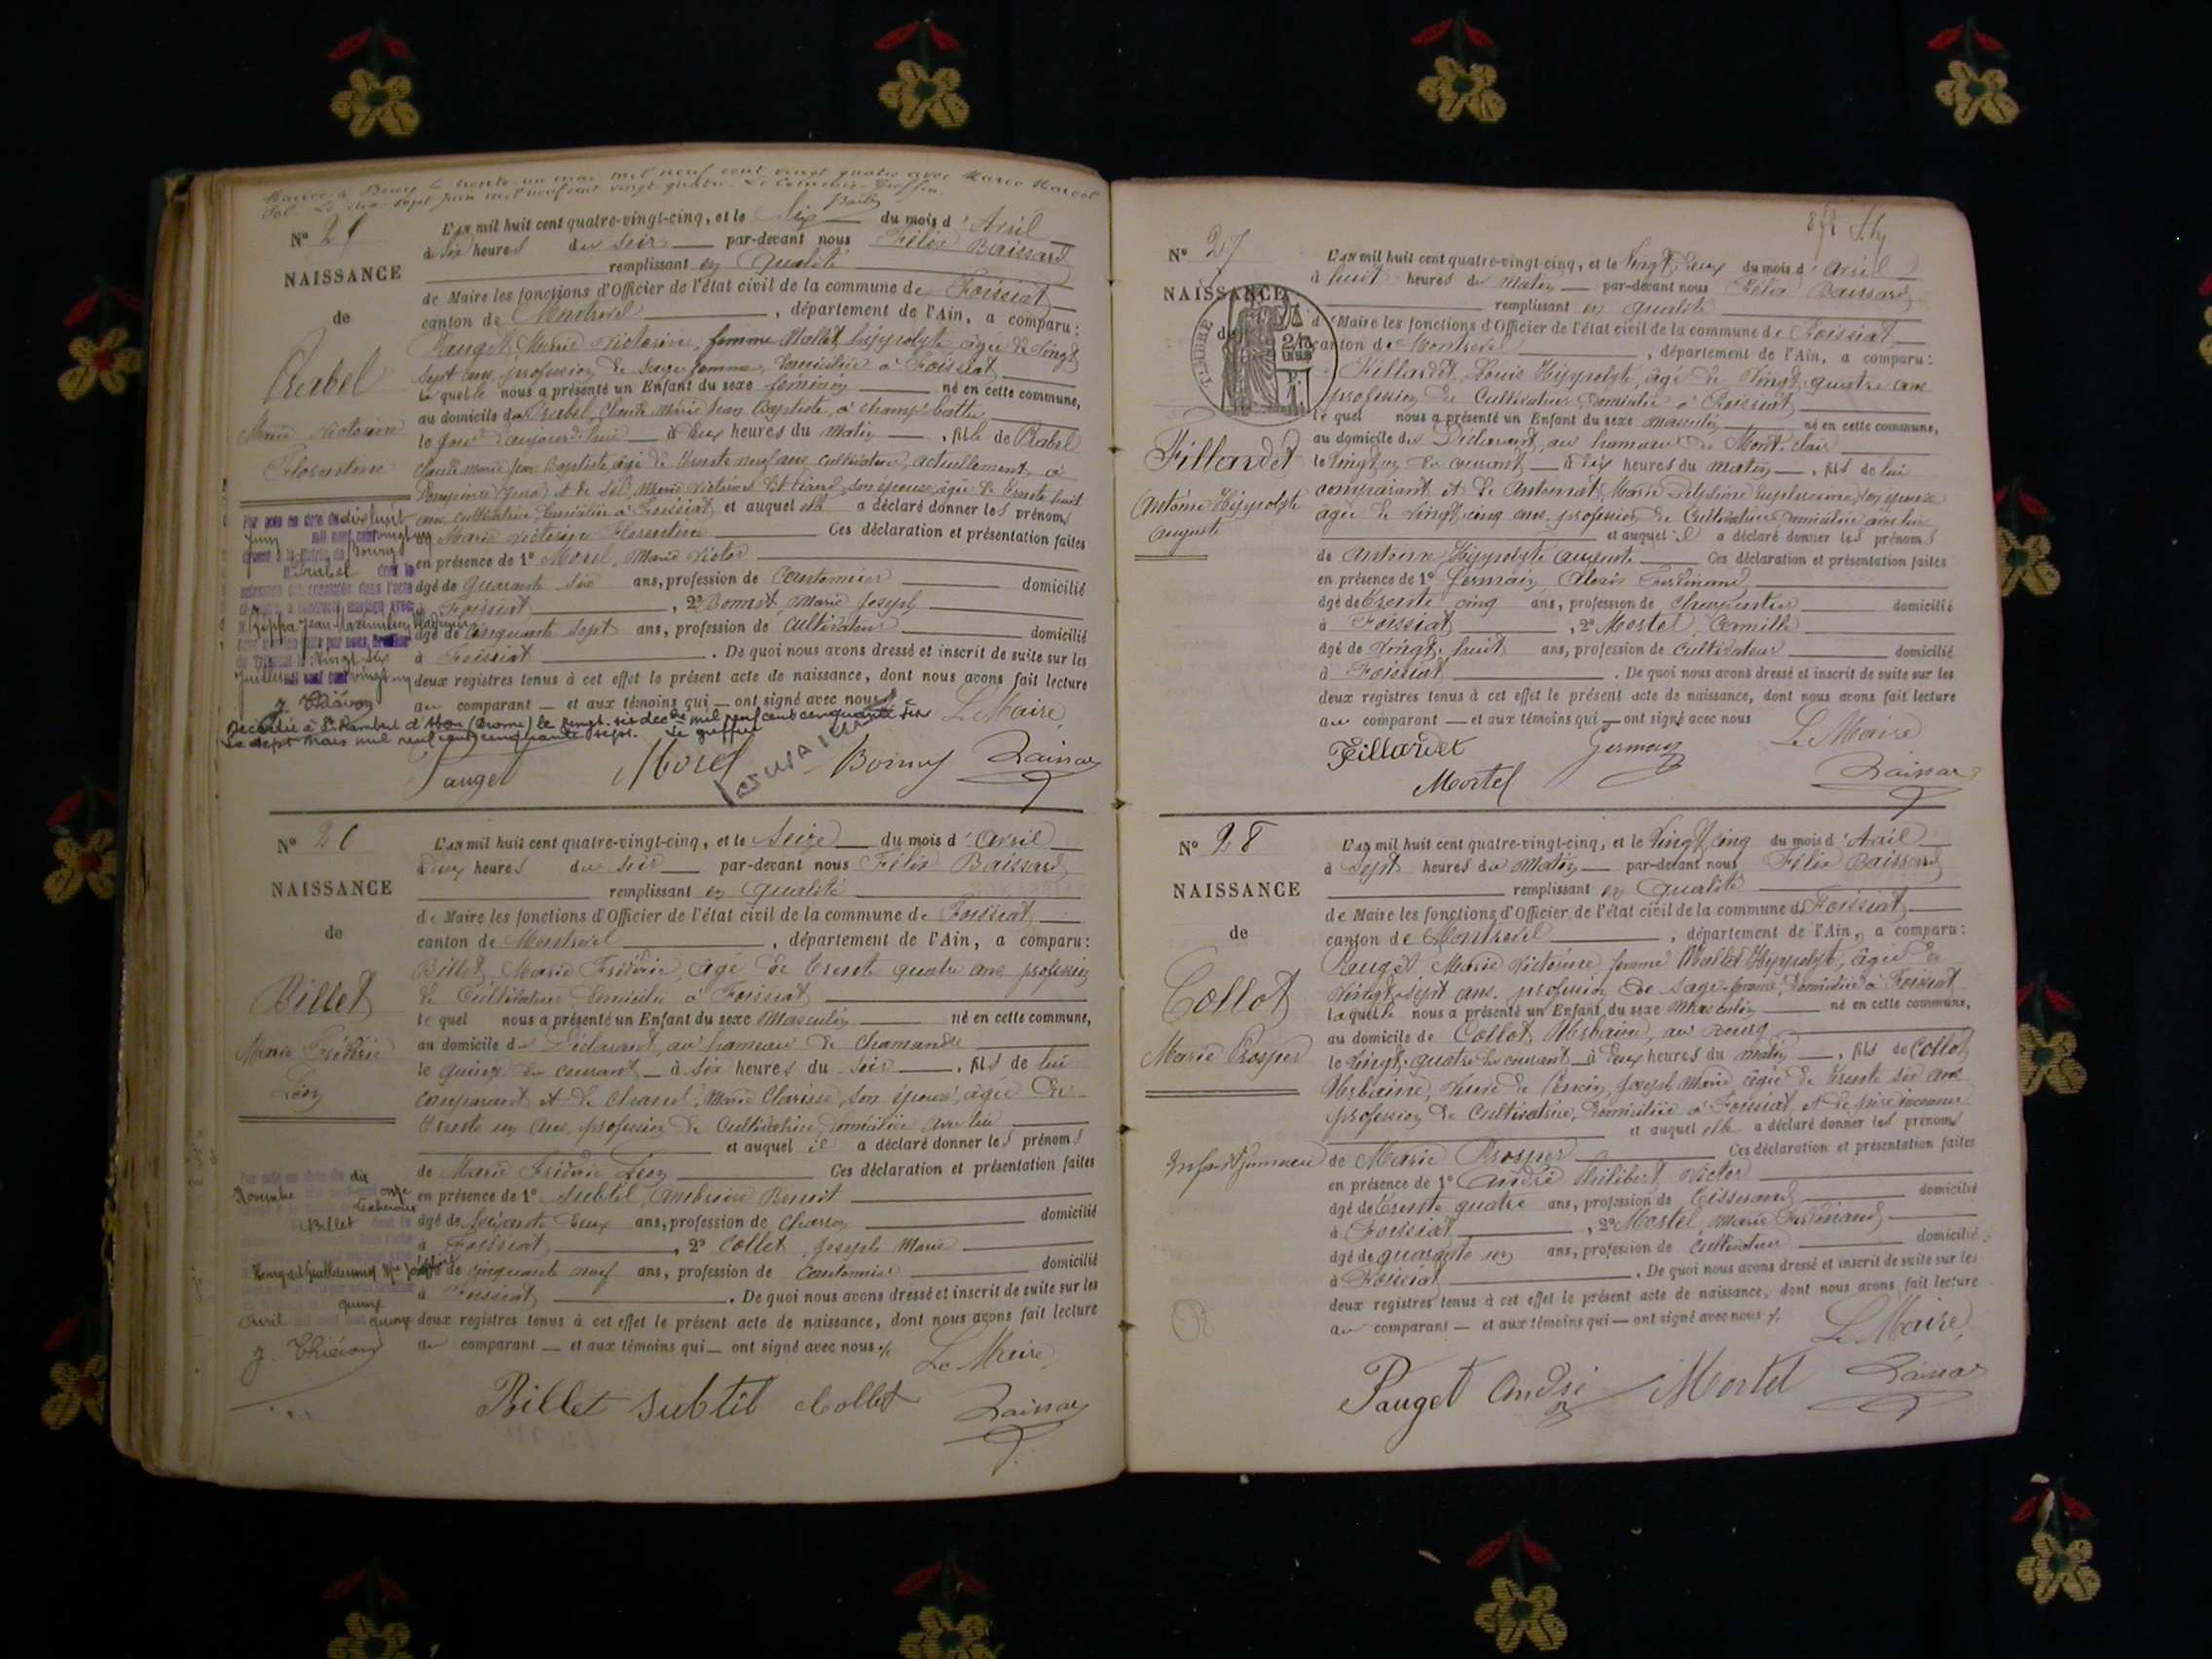 Mariée à Bourg le trente un mai mil neuf cent vingt quatre avec Marie Marcel
Sol. Le dix-sept juin mil neuf cent vingt quatre. Le Greffier
N° 25
NAISSANCE
de
Prabel
Marie Victorine
Florentine
L'an mil huit cent quatre-vingt-cinq, et le Six du mois d'Avril
à six heures du soir par-devant nous Félix Baissard
remplissant en qualité
de Maire les fonctions d'Officier de l'état civil de la commune de Foissiat
canton de Montrevel, département de l'Ain, a comparu:
Pauget, Marie Victorine, femme Mallet hippolyte âgée de vingt
sept ans, profession de sage femme, domiciliée à Foissiat
laquelle nous a présenté un Enfant du sexe féminin né en cette commune,
au domicile de Prabel, Claude Marie Jean Baptiste, à champ
le jour d'aujourd'hui à deux heures du matin, fille de Prabel
Claude Marie Jean Baptiste âgé de trente neuf ans, cultivateur, actuellement à
(Jura) et de Marie Victorine son épouse, âgée de trente huit
ans, cultivatrice, domiciliée à Foissiat et auquel elle a déclaré donner les prénoms
de Marie Victorine Florentine Ces déclaration et présentation faites
en présence de 1° Morel, Marie Victor
âgé de quarante six ans, profession de Cantonnier domicilié
à Foissiat, 2° Bonnet, Marie Joseph
âgé de cinquante sept ans, profession de cultivateur domicilié
à Foissiat. De quoi nous avons dressé et inscrit de suite sur les
deux registres tenus à cet effet le présent acte de naissance, dont nous avons fait lecture
au comparant et aux témoins qui ont signé avec nous
Le Maire
Décédée à St Rambert d'Albon (Drôme) le vingt-six déc mil neuf cent cinquante six
Le sept mars mil neuf cent cinquante sept. Le greffier
Pauget Morel Bonnet Baissard
N° 26
NAISSANCE
de
Billet
Marie Frédéric
Léon
L'an mil huit cent quatre-vingt-cinq, et le Seize du mois d'Avril
à deux heures du soir par-devant nous Félix Baissard
remplissant en qualité
de Maire les fonctions d'Officier de l'état civil de la commune de Foissiat
canton de Montrevel, département de l'Ain, a comparu:
Billet, Marie Frédéric, âgé de trente quatre ans, profession
de Cultivateur, domicilié à Foissiat
lequel nous a présenté un Enfant du sexe Masculin né en cette commune,
au domicile du Déclarant, au hameau de Chamandre
le quinze du courant à six heures du soir, fils de lui
comparant et de Chanel, Marie Clarisse, son épouse, âgée de
trente un ans, profession de Cultivatrice domiciliée avec lui
et auquel il a déclaré donner les prénoms
de Marie Frédéric Léon Ces déclaration et présentation faites
en présence de 1° Subtil, Ambroise Benoit
âgé de soixante deux ans, profession de Charron domicilié
à Foissiat, 2° Collet, Joseph Marie
âgé de cinquante neuf ans, profession de Cantonnier domicilié
à Foissiat. De quoi nous avons dressé et inscrit de suite sur les
deux registres tenus à cet effet le présent acte de naissance, dont nous avons fait lecture
au comparant et aux témoins qui ont signé avec nous
Le Maire
Billet Subtil Collet Baissard
N° 27
NAISSANCE
de
TIMBRE
Fillardet
Antoine Hippolyte
Auguste
L'an mil huit cent quatre-vingt-cinq, et le vingt-deux du mois d'Avril
à huit heures du matin par-devant nous Félix Baissard
remplissant en qualité
de Maire les fonctions d'Officier de l'état civil de la commune de Foissiat
canton de Montrevel, département de l'Ain, a comparu:
Fillardet, Louis Hippolyte, âgé de vingt quatre ans
profession de Cultivateur domicilié à Foissiat
lequel nous a présenté un Enfant du sexe masculin né en cette commune,
au domicile du Déclarant, au hameau de Mont-clair
le vingt un du courant à dix heures du matin, fils de lui
comparant et de Antoinat, Marie Euphrosine, son épouse
âgée de vingt cinq ans, profession de Cultivatrice domiciliée avec lui
et auquel il a déclaré donner les prénoms
de Antoine Hippolyte Auguste Ces déclaration et présentation faites
en présence de 1° Germain, Alexis Ferdinand
âgé de trente cinq ans, profession de Charpentier domicilié
à Foissiat, 2° Mortel, Camille
âgé de vingt huit ans, profession de cultivateur domicilié
à Foissiat. De quoi nous avons dressé et inscrit de suite sur les
deux registres tenus à cet effet le présent acte de naissance, dont nous avons fait lecture
au comparant et aux témoins qui ont signé avec nous
Le Maire
Fillardet Germain
Mortel Baissard
N° 28
NAISSANCE
de
Collot
Marie Prosper
Enfant jumeau
L'an mil huit cent quatre-vingt-cinq, et le vingt cinq du mois d'Avril
à sept heures du matin par-devant nous Félix Baissard
remplissant en qualité
de Maire les fonctions d'Officier de l'état civil de la commune de Foissiat
canton de Montrevel, département de l'Ain, a comparu:
Pauget, Marie Victorine, femme Mallet Hippolyte, âgée de
vingt-sept ans, profession de sage-femme, domiciliée à Foissiat
laquelle nous a présenté un Enfant du sexe masculin né en cette commune,
au domicile de Collot, Urbaine, au Bourg
le vingt-quatre du courant à deux heures du matin, fils de Collot
Urbaine, veuve de Poncin, Joseph Marie âgée de trente six ans
profession de Cultivatrice, domiciliée à Foissiat et de père inconnu
et auquel elle a déclaré donner les prénoms
de Marie Prosper Ces déclaration et présentation faites
en présence de 1° André Philibert Victor
âgé de trente quatre ans, profession de Tisserand domicilié
à Foissiat, 2° Mortel, Marie Ferdinand
âgé de quarante un ans, profession de cultivateur domicilié
à Foissiat. De quoi nous avons dressé et inscrit de suite sur les
deux registres tenus à cet effet le présent acte de naissance, dont nous avons fait lecture
au comparant et aux témoins qui ont signé avec nous
Le Maire
Pauget André Mortel Baissard